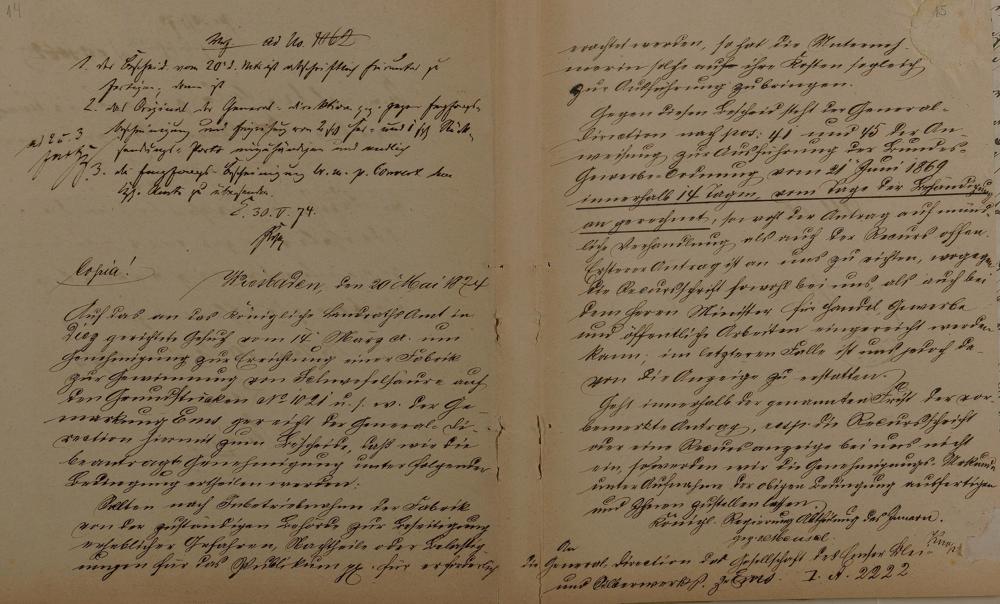 14
ad No. 1462
1. der Bescheid vom 20 d. Mts ist abschriftlich hierunter zu
fertigen, dann ist
2. das Original der General-Direktion gegen Empfangs-
bescheinigung und von 2 und
sendungs-Porto einzuhändigen und endlich
3. die Empfangs-Bescheinigung br. m. p. Couvert dem
Kgl. Amte zu übersenden.
E. 30. V. 74.
Copia!
Wiesbaden, den 20 Mai 1874
Auf das an das Königliche Landraths Amt in
Diez gerichtete Gesuch vom 14 März cr. um
Genehmigung zur Errichtung einer Fabrik
zur Gewinnung von Schwefelsäure auf
den Grundstücken No 1021 u. s. w. der Ge-
markung Ems gereicht der General-Di-
rection hiermit zum Bescheide, daß wir die
beantragte Genehmigung unter folgender
Bedingung ertheilen werden:
Sollten nach Inbetriebnahme der Fabrik
von der zuständigen Behörde zur Beseitigung
erheblicher Gefahren, Nachtheile oder Belästig-
ungen für das Publikum pp. für erforderlich
15
erachtet werden, so hat die Unterneh-
merin solche auf ihre Kosten sogleich
zur Ausführung zu bringen.
Gegen diesen Bescheid steht der General-
Direction nach pos: 41 und 45 der An-
weisung zur Ausführung der Bundes-
Gewerbe-Ordnung vom 21 Juni 1869
innerhalb 14 Tagen, vom Tage der Behändigung
an gerechnet, sowohl der Antrag auf münd-
liche Verhandlung als auch der Recurs offen.
Ersterer Antrag ist an uns zu richten, wogegen
die Recursschrift sowohl bei uns, als auch bei
dem Herrn Minister für Handel, Gewerbe
und öffentliche Arbeiten eingereicht werden
kann; im letzteren Falle ist uns jedoch da-
von die Anzeige zu erstatten.
Geht innerhalb der genannten Frist der vor-
bemerkte Antrag, resp. die Recursschrift
oder eine Recursanzeige bei uns nicht
ein, so werden wir die Genehmigungs-Urkunde
unter Aufnahme der obigen Bedingung ausfertigen
und Ihnen zustellen lassen.
Königl. Regierung Abtheilung des Innern.
gez.
An
die General-Direction der Gesellschaft des Emser Blei-
und Silberwerks. zu Ems. I. A. 2222